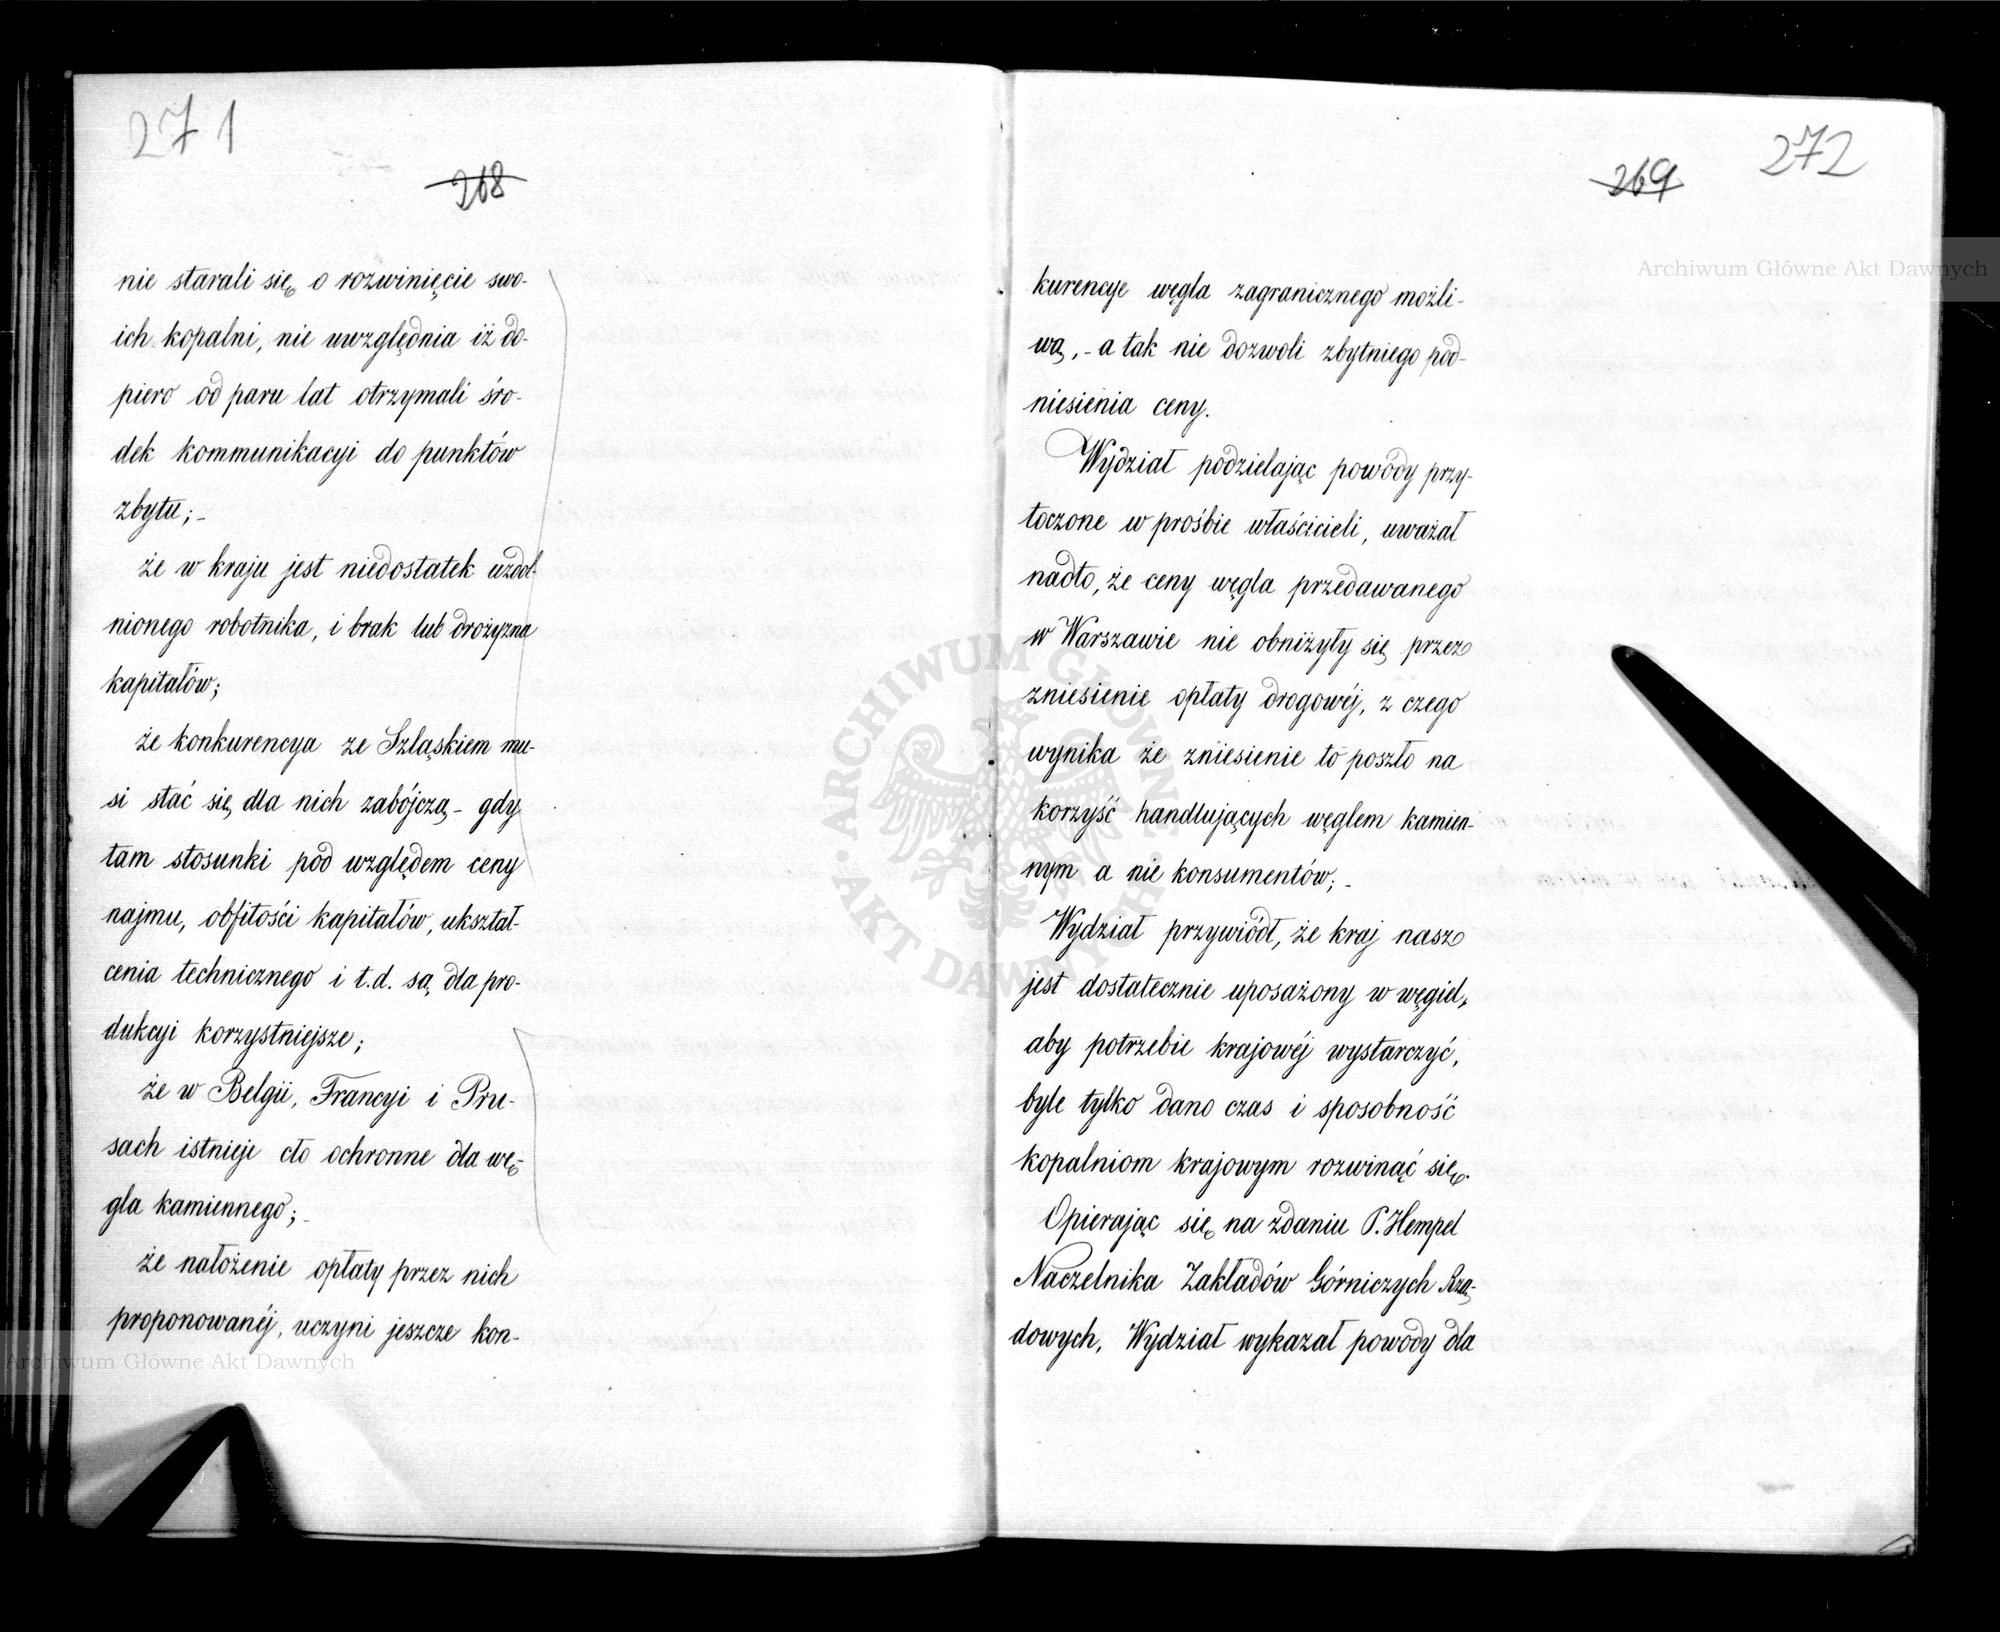 271
268
nie starali się o rozwinięcie swo-
ich kopalni, nie uwzględnia iż do-
piero od paru lat otrzymali śro-
dek kommunikacyi do punktów
zbytu;-
że w kraju jest niedostatek uzdol-
nionego robotnika, i brak lub drożyzna
kapitałów;
że konkurencya ze Szląskiem mu-
si stać się dla nich zabójczą - gdy
tam stosunki pod względem ceny
najmu, obfitości kapitałów, ukształ-
cenia technicznego i t.d. są dla pro-
dukcyi korzystniejsze;
że w Belgii, Francyi i Pru-
sach istnieje cło ochronne dla wę-
gla kamiennego;-
że nałożenie opłaty przez nich
proponowanéj, uczyni jeszcze kon-
272
269
kurencye węgla zagranicznego możli-
wą, - a tak nie dozwoli zbytniego pod-
niesienia ceny.
Wydział podzielając powody przy-
toczone w prośbie właścicieli, uważał
nadto, że ceny węgla przedawanego
w Warszawie nie obniżyły się przez
zniesienie opłaty drogowéj, z czego
wynika że zniesienie to poszło na
korzyść handlujących węglem kamien-
nym a nie konsumentów;-
Wydział przywiódł, że kraj nasz
jest dostatecznie uposażony w węgiel,
aby potrzebie krajowéj wystarczyć,
byle tylko dano czas i sposobność
kopalniom krajowym rozwinąć się.
Opierając się na zdaniu P. Hempel
Naczelnika Zakładów Górniczych Rzą-
dowych, Wydział wykazał powody dla
Archiwum Główne Akt Dawnych
ARCHIWUM GŁÓWNE AKT DAWNYCH
Archiwum Główne Akt Dawnych